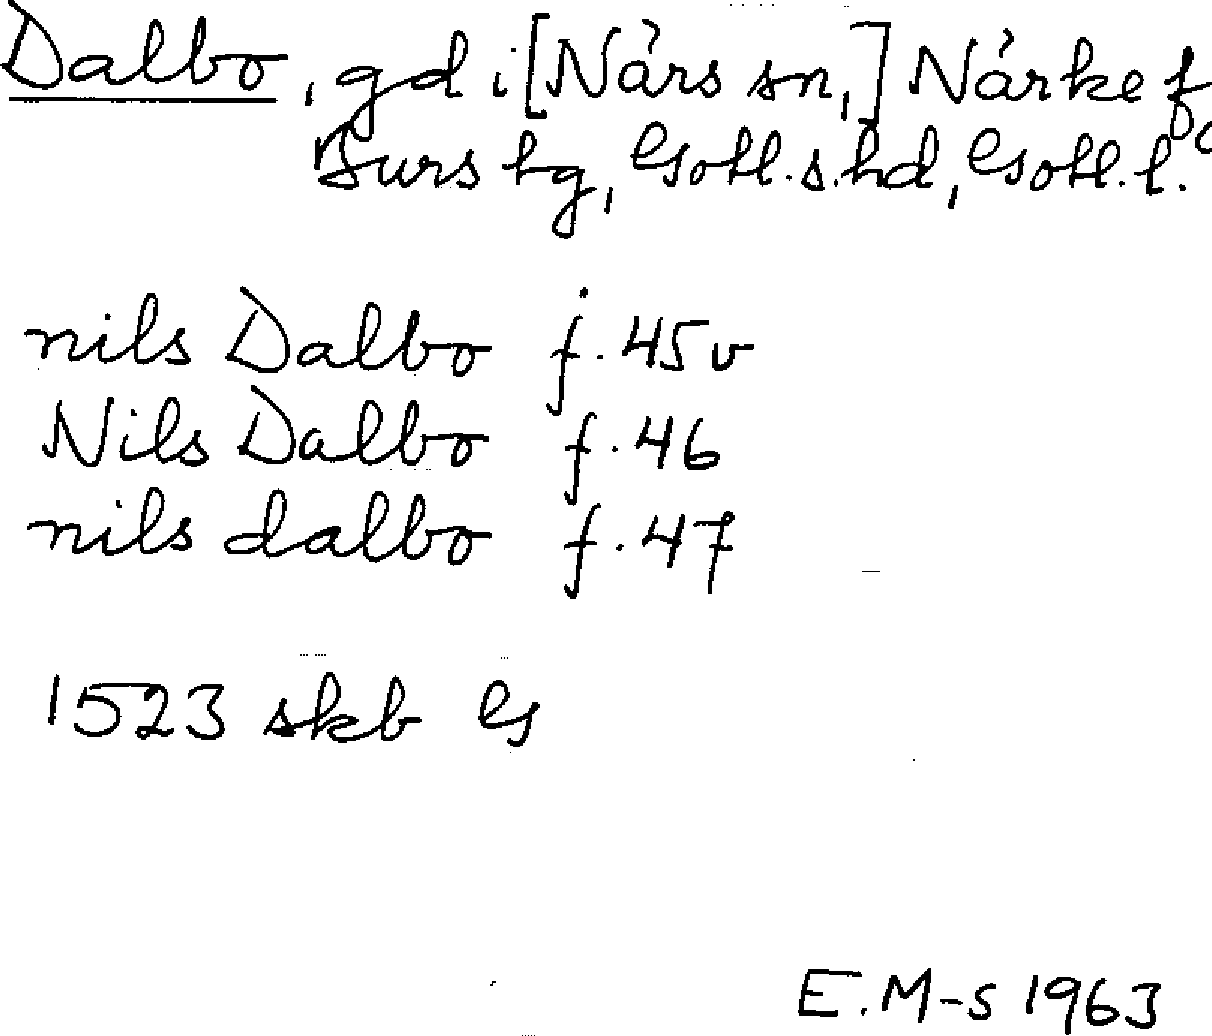 Dalbo, gd i [Närs sn,] Närke f
Burs tg, Gotl. s. hd, Gotl. l.
nils Dalbo f. 45v
Nils Dalbo f. 46
nils dalbo f. 47
1523 skb G
E. M-s 1963